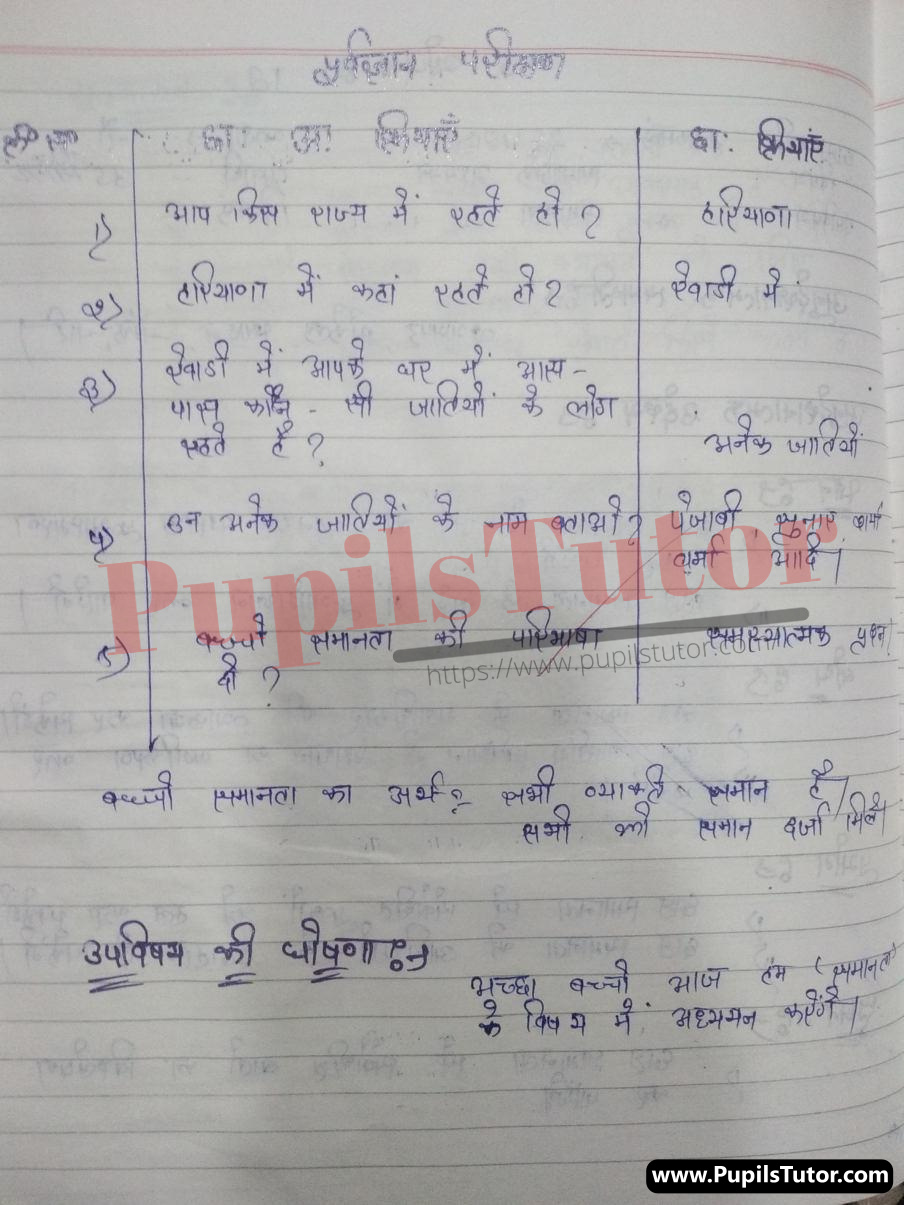 पूर्वज्ञान परीक्षण
छा. अ. क्रियाएँ छा. क्रियाएँ
1) आप किस राज्य में रहते हो? हरियाणा
2) हरियाणा में कहां रहते हो? रेवाडी में
3) रेवाडी में आपके घर में आस-
पास कौन-सी जातियों के लोग
रहते है? अनेक जातियों
4) उन अनेक जातियों के नाम बताओ? पंजाबी, सुनार, शर्मा
वर्मा आदि।
5) बच्चों समानता की परिभाषा समस्यात्मक प्रश्न
दो?
PupilsTutor
https://www.pupilstutor.com
बच्चों समानता का अर्थ? सभी व्यक्ति समान है।
सभी को समान दर्जा मिले
उपविषय की घोषणा:-
अच्छा बच्चों आज हम (समानता)
के विषय में अध्ययन करेंगे।
www.PupilsTutor.com